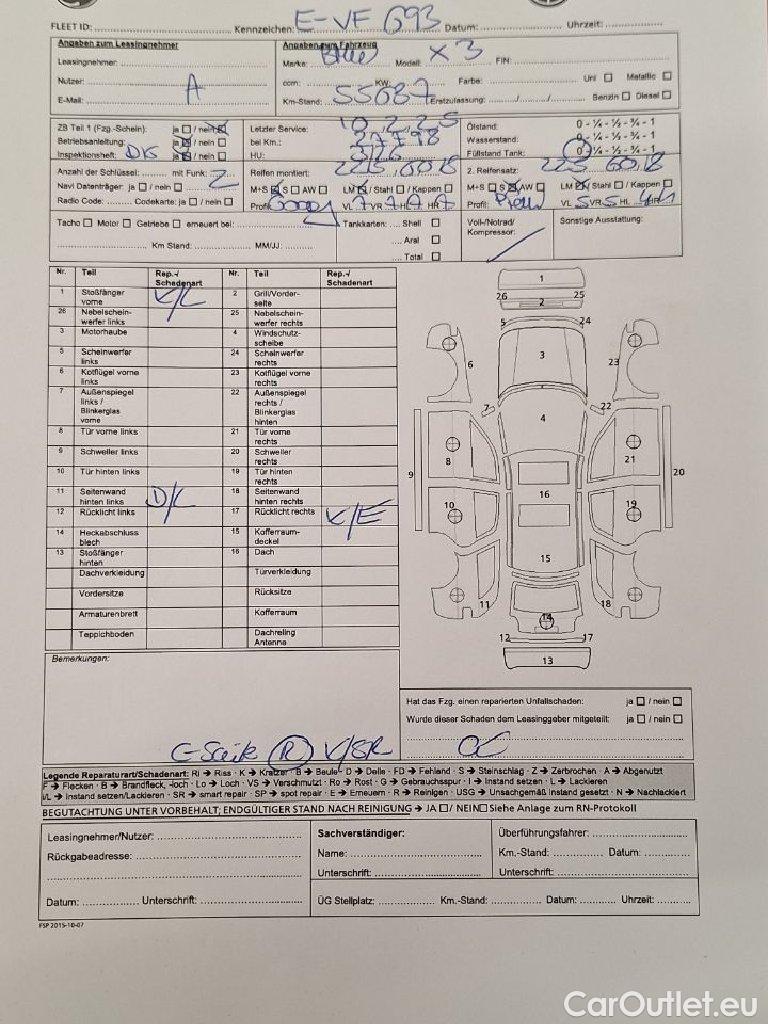 FLEET ID: Kennzeichen: E-VF 693 Datum: Uhrzeit:
Angaben zum Leasingnehmer
Angaben zum Fahrzeug
Leasingnehmer: Marke: BMW Modell: X3 FIN:
Nutzer: A ccm: KW: Farbe: Uni Metallic
E-Mail: Km-Stand: 55087 Erstzulassung: Benzin Diesel
ZB Teil 1 (Fzg.-Schein): ja / nein Letzter Service: 10.2.25 Ölstand: 0 - ¼ - ½ - ¾ - 1
Betriebsanleitung: ja / nein bei Km.: Wasserstand: 0 - ¼ - ½ - ¾ - 1
Inspektionsheft: DIS ja / nein HU: Füllstand Tank: 0 - ¼ - ½ - ¾ - 1
Anzahl der Schlüssel: mit Funk: 2 Reifen montiert: 225,60,18 2. Reifensatz: 225 60,18
Navi Datenträger: ja / nein M+S S AW LM / Stahl / Kappen M+S S AW LM Stahl / Kappen
Radio Code: Codekarte: ja / nein Profil: VL 7 VR 7 HL 7 HR 7 Profil: VL 5 VR 5 HL HR
Tacho Motor Getriebe erneuert bei: Tankkarten: Shell Voll-/Notrad/ Sonstige Ausstattung:
Aral Kompressor:
Km Stand: MM/JJ: Total
Nr. Teil Rep.-/ Schadenart Nr. Teil Rep.-/ Schadenart
1 Stoßfänger vorne K/L 2 Grill/Vorderseite
26 Nebelscheinwerfer links 25 Nebelscheinwerfer rechts
3 Motorhaube 4 Windschutzscheibe
5 Scheinwerfer links 24 Scheinwerfer rechts
6 Kotflügel vorne links 23 Kotflügel vorne rechts
7 Außenspiegel links / Blinkerglas vorne 22 Außenspiegel rechts / Blinkerglas hinten
8 Tür vorne links 21 Tür vorne rechts
9 Schweller links 20 Schweller rechts
10 Tür hinten links 19 Tür hinten rechts
11 Seitenwand hinten links D/L 18 Seitenwand hinten rechts
12 Rücklicht links 17 Rücklicht rechts K/E
14 Heckabschlussblech 15 Kofferraumdeckel
13 Stoßfänger hinten 16 Dach
Dachverkleidung Türverkleidung
Vordersitze Rücksitze
Armaturenbrett Kofferraum
Teppichboden Dachreling Antenne
1
26 25
2
5 24
3
6 23
7 22
4
8 21
9 20
16
10 19
15
11 18
14
12 17
13
Bemerkungen:
Hat das Fzg. einen reparierten Unfallschaden: ja / nein
Wurde dieser Schaden dem Leasinggeber mitgeteilt: ja / nein
R K/SR
Legende Reparaturart/Schadenart: Ri → Riss · K → Kratzer · B → Beule · D → Delle · FD → Fehlend · S → Steinschlag · Z → Zerbrochen · A → Abgenutzt
F → Flecken · B → Brandfleck, -loch · Lo → Loch · VS → Verschmutzt · Ro → Rost · G → Gebrauchsspur · I → Instand setzen · L → Lackieren
I/L → Instand setzen/Lackieren · SR → smart repair · SP → spot repair · E → Erneuern · R → Reinigen · USG → Unsachgemäß Instand gesetzt · N → Nachlackiert
BEGUTACHTUNG UNTER VORBEHALT; ENDGÜLTIGER STAND NACH REINIGUNG → JA / NEIN Siehe Anlage zum RN-Protokoll
Leasingnehmer/Nutzer: Sachverständiger: Überführungsfahrer:
Rückgabeadresse: Name: Km.-Stand: Datum:
Unterschrift: Unterschrift:
Datum: Unterschrift: ÜG Stellplatz: Km.-Stand: Datum: Uhrzeit:
FSP 2015-10-07
CarOutlet.eu